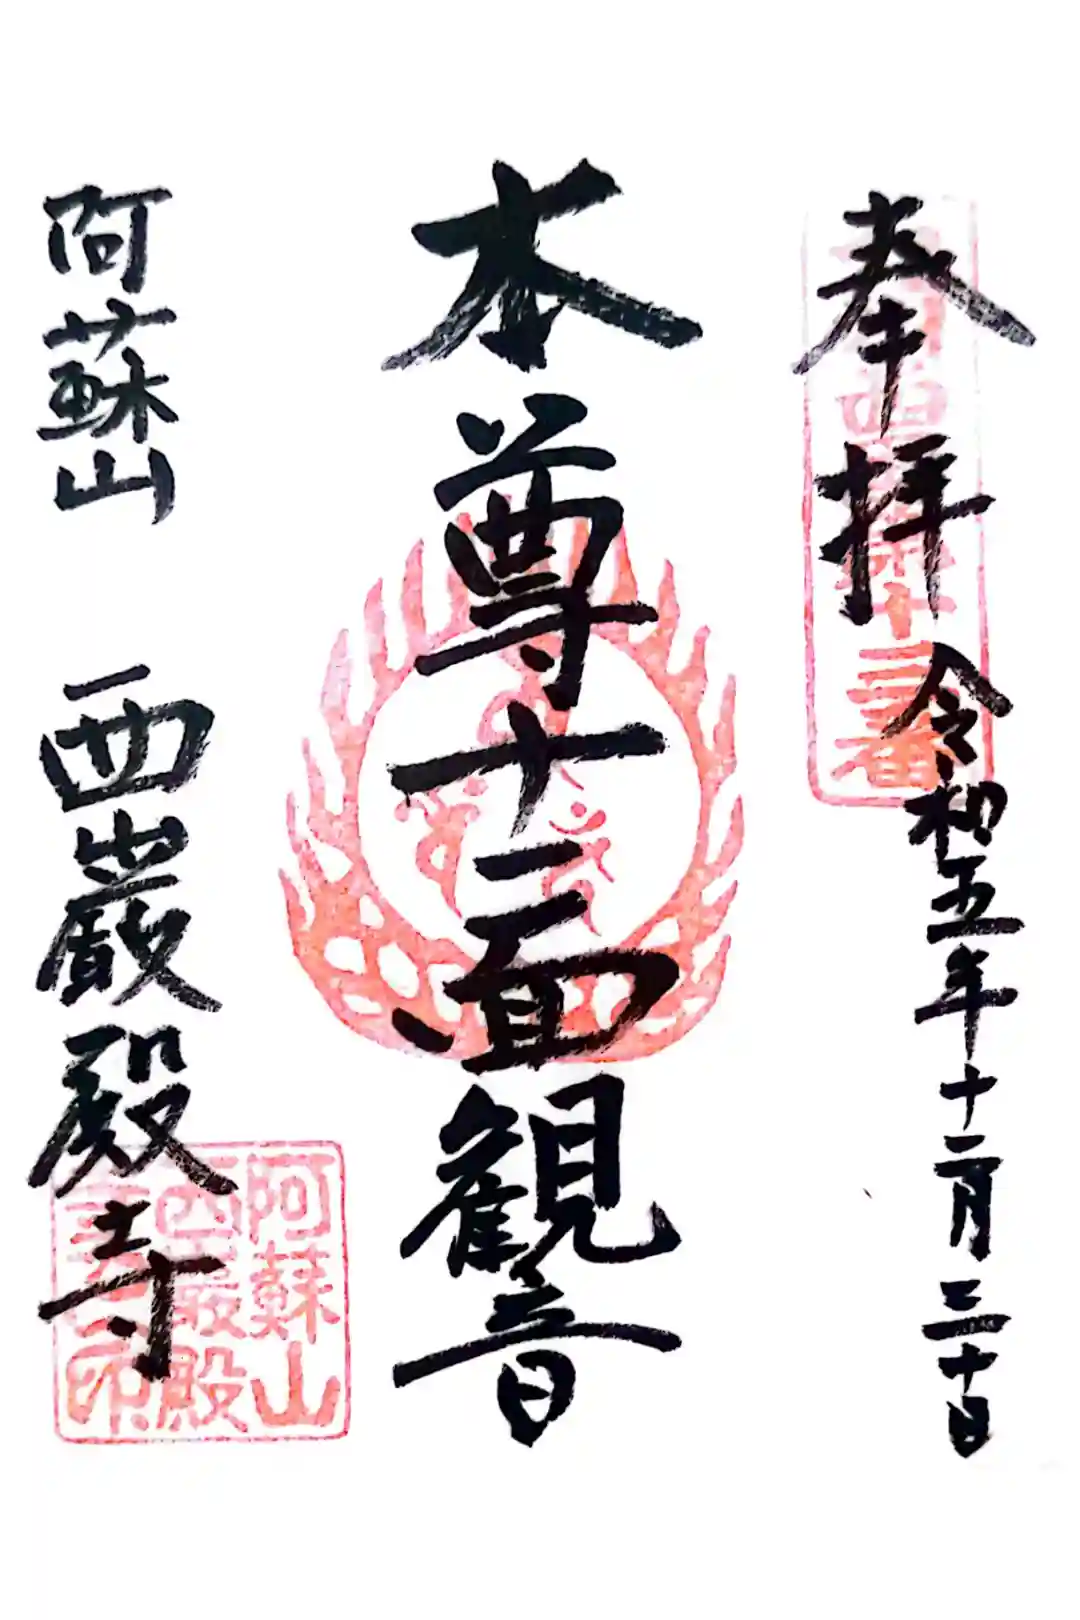 奉拝
令和五年十二月三十日
第十三番
本尊十一面観音
阿蘇山 西巌殿寺
阿蘇山
西巌殿
印